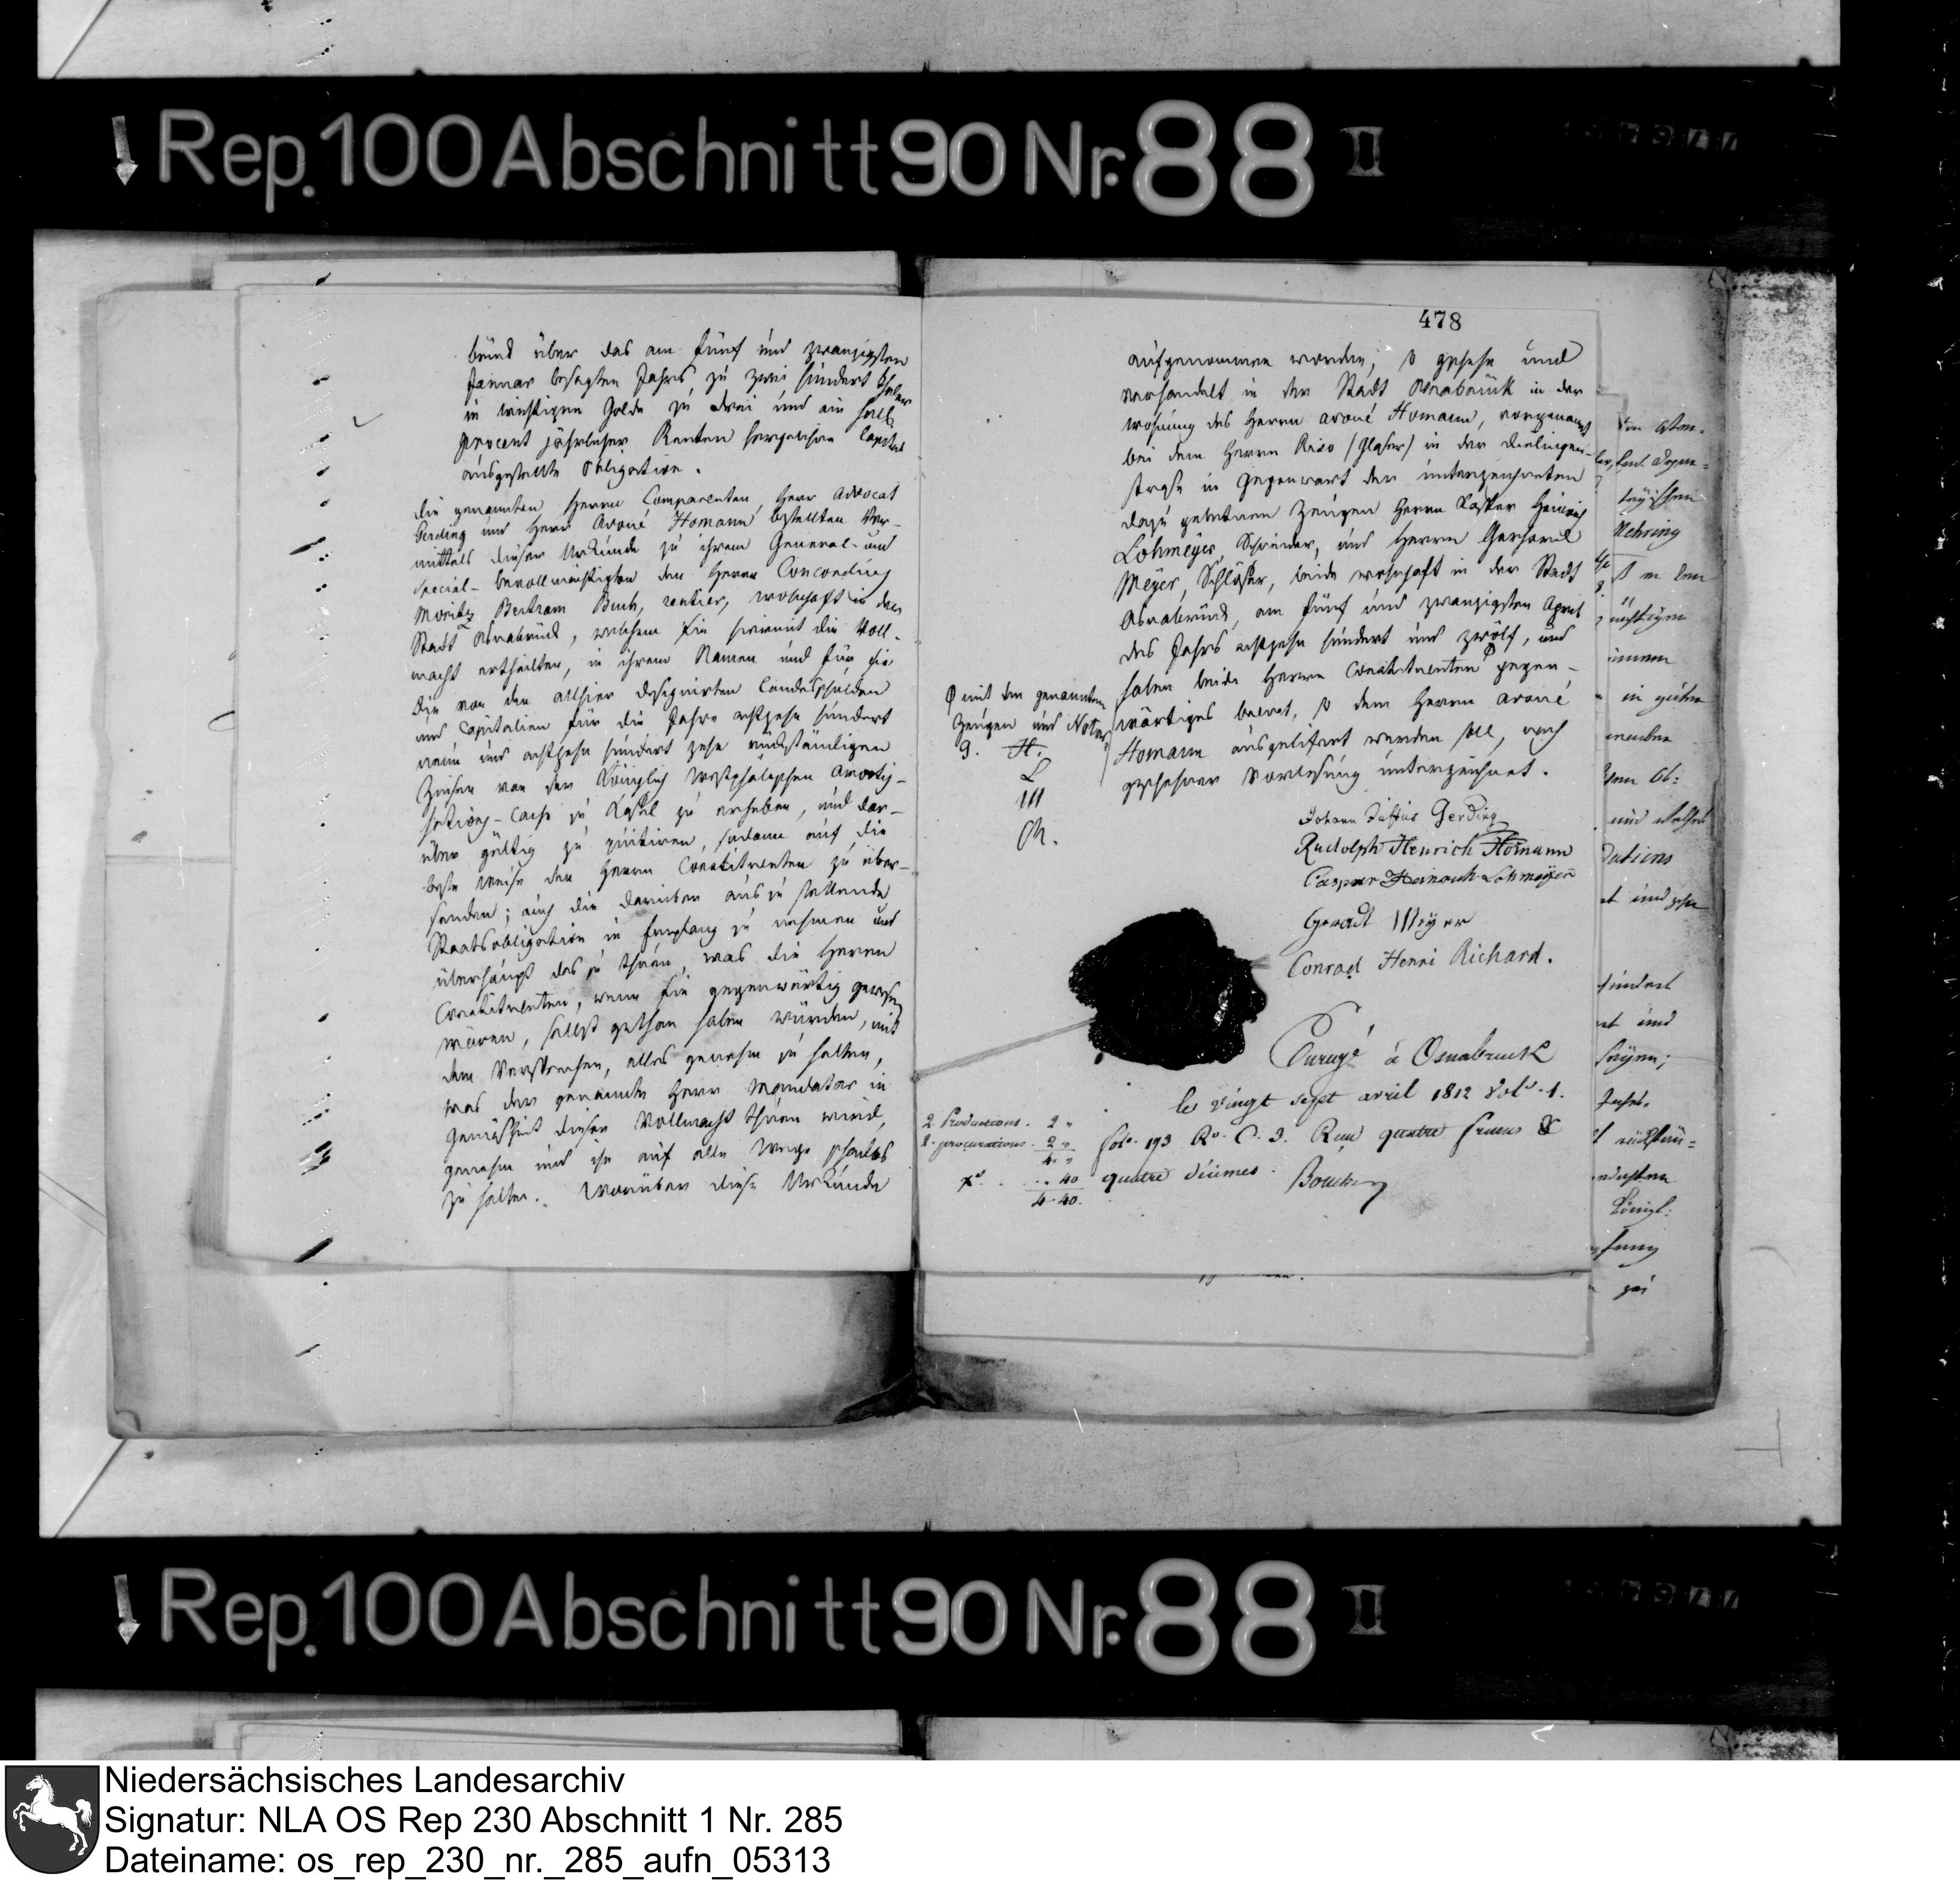 Rep. 100 Abschnitt 90 Nr. 88 II
brück über das am fünf und zwanzigsten
Januar besagten Jahrs zu zwei hundert Thaler
in wichtigen Golde zu drei und ein halb
procent jährlicher Renten hergeliehene Capital
ausgestellte Obligation.
die genannten Herrn Comparenten, Herr Advocat
Gerding und Herr Avoué Homann bestellten Ver-
mittels dieser Urkunde zu ihrem General- und
Special-bevollmächtigten den Herrn Concordius
Moritz Bertram Buch, rentier, wohnhaft in der
Stadt Osnabrück, welchem sie hiermit die Voll-
macht ertheilten, in ihrem Namen und für sie
die von den allhier designirten Landesschulden
und Capitalien für die Jahre achtzehn hundert
neun und achtzehn hundert zehn rückständigen
Zinsen von der Königlich Westphälischen Amorti-
sations-Casse zu Cassel zu erheben, und dar-
über gültig zu quitiren, sodann auf die
beste Weise den Herrn Constituenten zu über-
senden; auch die darüber auszustellende
Staatsobligation in Empfang zu nehmen und
überhaupt das zu thuen, was die Herrn
Constituenten, wenn sie gegenwärtig gewesen
wären, selbst gethan haben würden, mit
dem Versprechen, alles genehm zu halten,
was der genannte Herr Mandatar in
Gemäßheit dieser Vollmacht thuen wird,
genehm und ihn auf alle Wege schadlos
zu halten. Worüber diese Urkunde
478
aufgenommen worden, so geschehn und
verhandelt in der Stadt Osnabrück in der
Wohnung des Herrn Avoué Homann, vorgenannt
bei dem Herrn Riso (Glaser) in der Dielinger-
straße in Gegenwart der unterzeichneten
dazu gebetenen Zeugen Herrn Casper Heinrich
Lohmeyer, Schreiner, und Herrn Gerhard
Meyer, Schlosser, beide wohnhaft in der Stadt
Osnabrück, am fünf und zwanzigsten April
des Jahrs achtzehn hundert und zwölf, und
haben beide Herrn Constituenten gegen-
wärtiges brevet, so dem Herrn Avoué
Homann ausgeliefert werden soll, nach
geschehner Vorlesung unterzeichnet.
mit den genannten
Zeugen und Notar
G. H.
L
M
R.
Johann Justus Gerding
Rudolph Henrich Homann
Caspar Heinrich Lohmeyer
Geradt Meyer
Conrad Henri Richard.
Enregé à Osnabruck
le vingt sept avril 1812 Vol. 1.
fol. 193 Ro. C. 3. Reçu quatre francs &
quatre diximes.
2 Productions. 2 "
1. procurations. 2 "
4. "
.. 40
4-40.
Nehring
in guten
und
Königl:
zu
Rep. 100 Abschnitt 90 Nr. 88 II
Niedersächsisches Landesarchiv
Signatur: NLA OS Rep 230 Abschnitt 1 Nr. 285
Dateiname: os_rep_230_nr._285_aufn_05313